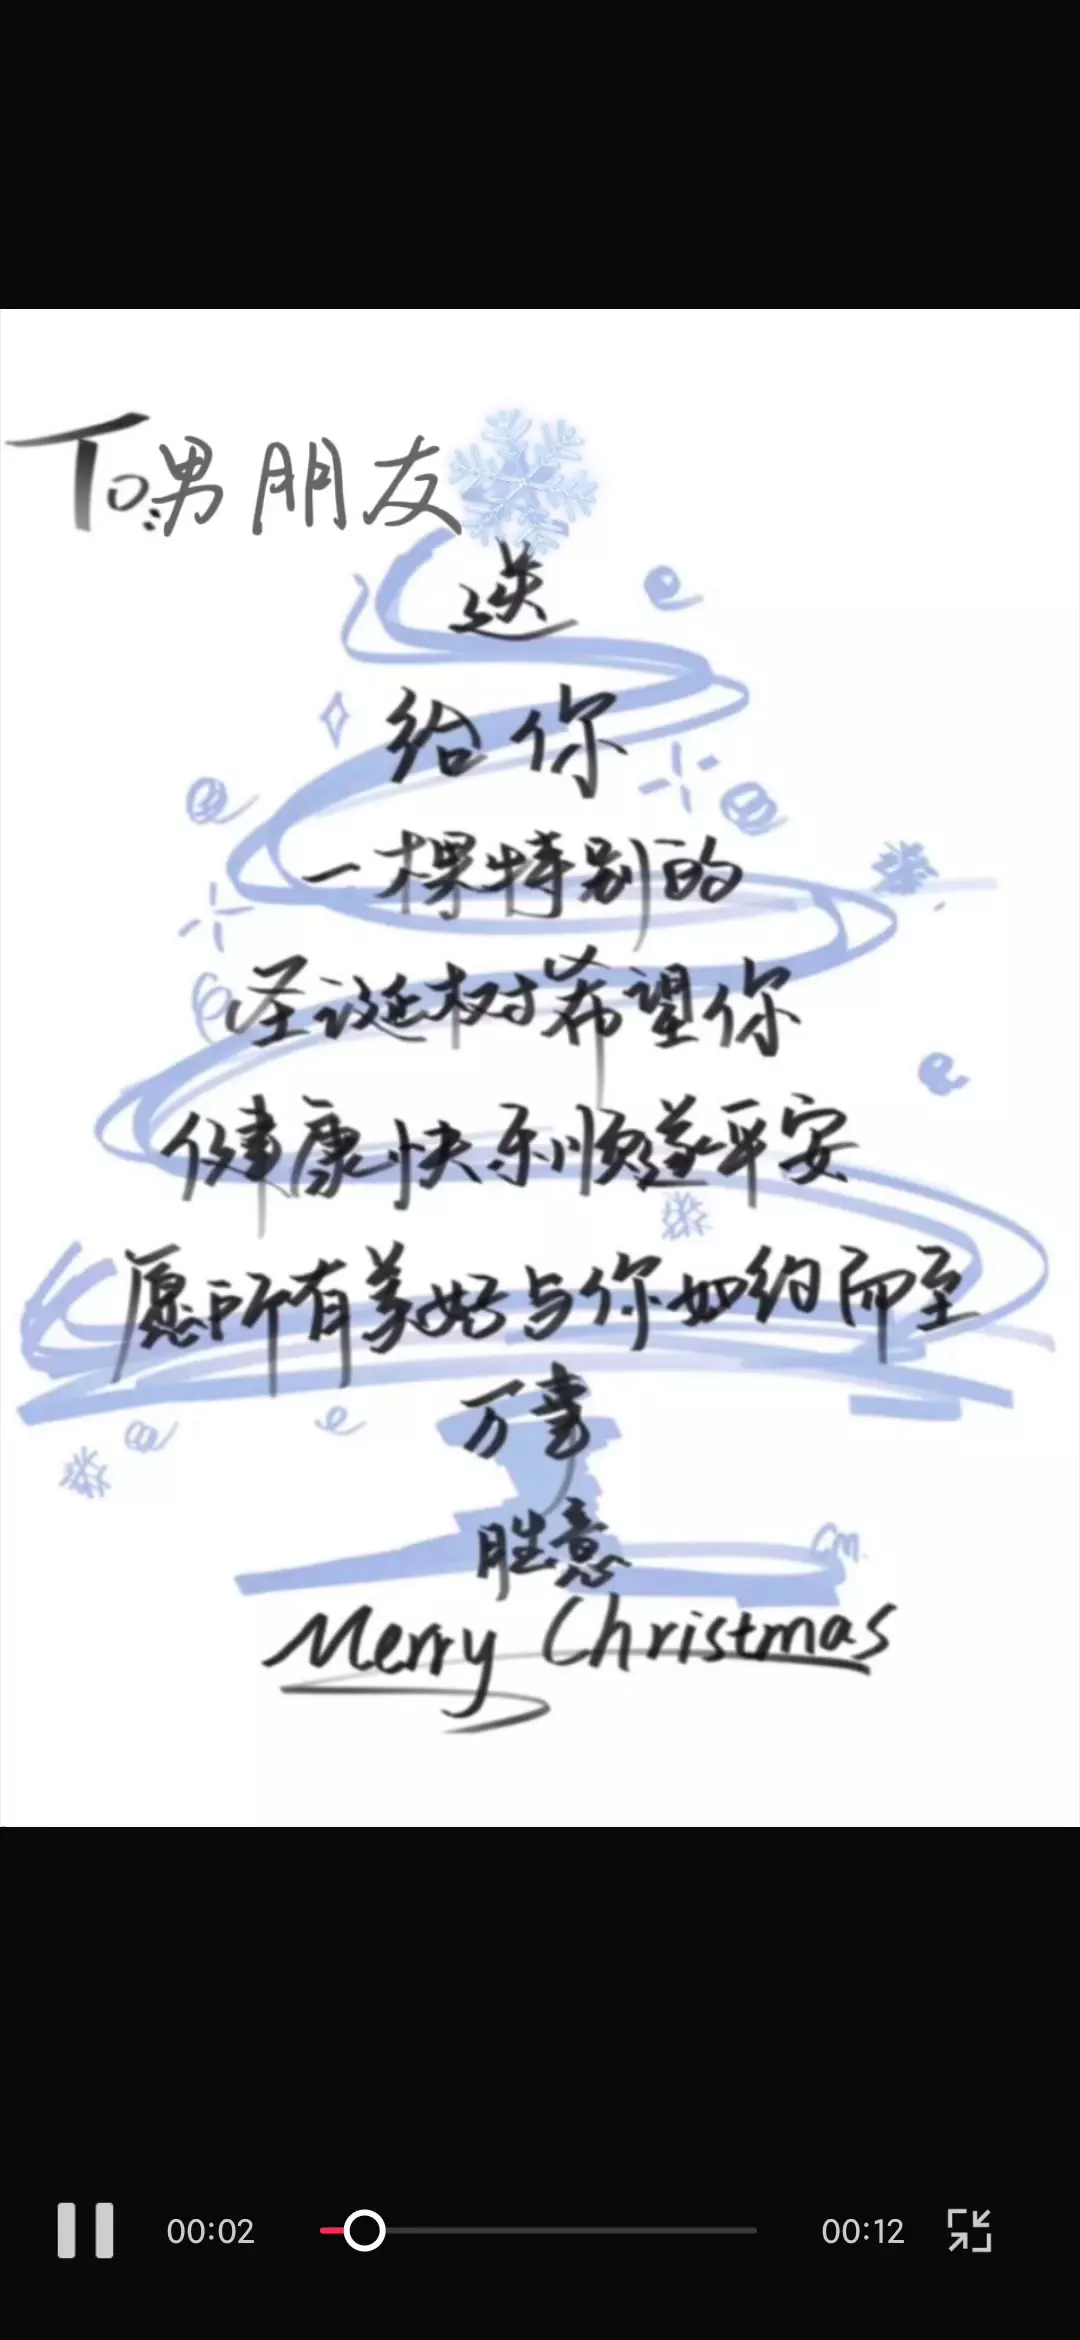 To:男朋友
送
给你
一棵特别的
圣诞树希望你
健康快乐顺遂平安
愿所有美好与你如约而至
万事
胜意
Cm.
Merry Christmas
00:02
00:12